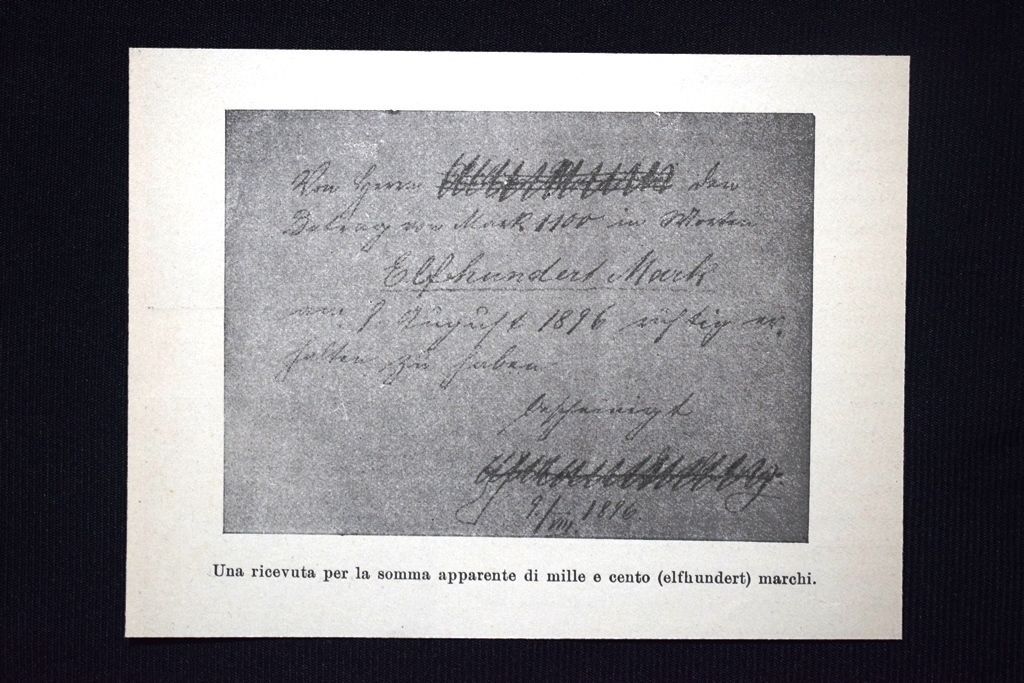 Von Herrn den
Betrag von Mark 1100 in Worten
Elfhundert Mark
am 9. August 1896 richtig er-
halten zu haben
bescheinigt
9./VIII. 1896
Una ricevuta per la somma apparente di mille e cento (elfhundert) marchi.